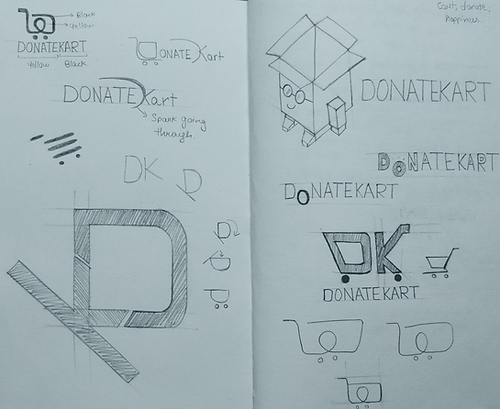 Black
Yellow
DONATEKART
Yellow Black
DONATE Kart
DONATEKart
Spark going
through
DK
D
D
Cart, donate,
happiness.
DONATEKART
DONATEKART
DONATEKART
DK
DONATEKART